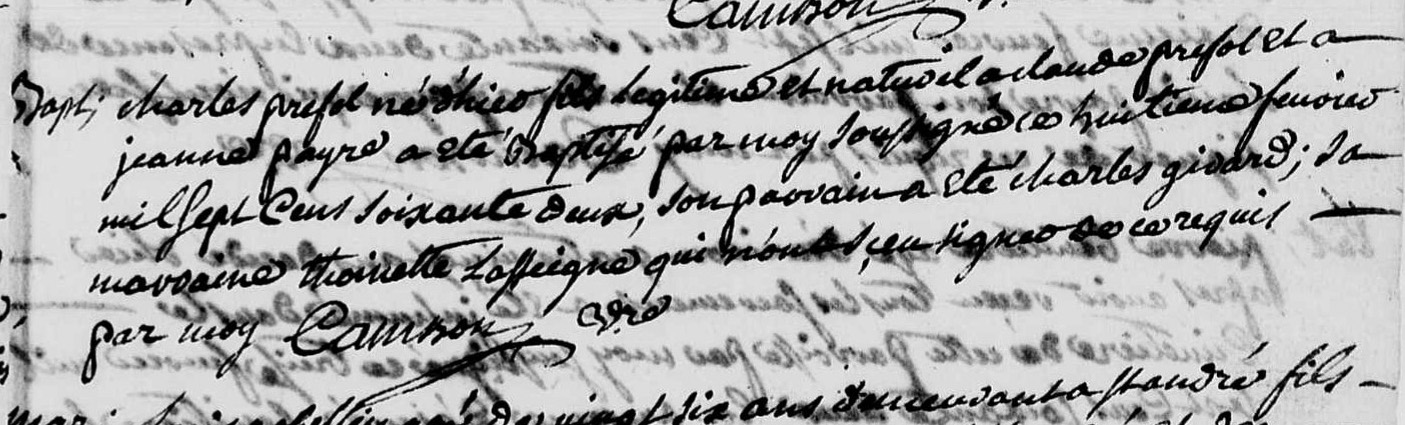 Cambon
Bapt; charles presol né d'hier fils legitime et naturel a claude presol et a
jeanne payre a eté Baptisé par moy soussigné ce huitieme fevrier
mil sept Cens soixante deux, son parrain a eté charles girard; sa
marraine thoinette Lasseigne qui n'ont sçeu signer de ce requis
par moy Cambon
mar; agé de vingt six ans demeurant a st andré fils